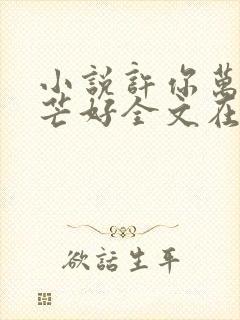 小說許你萬
芒好全文在
欲話生平